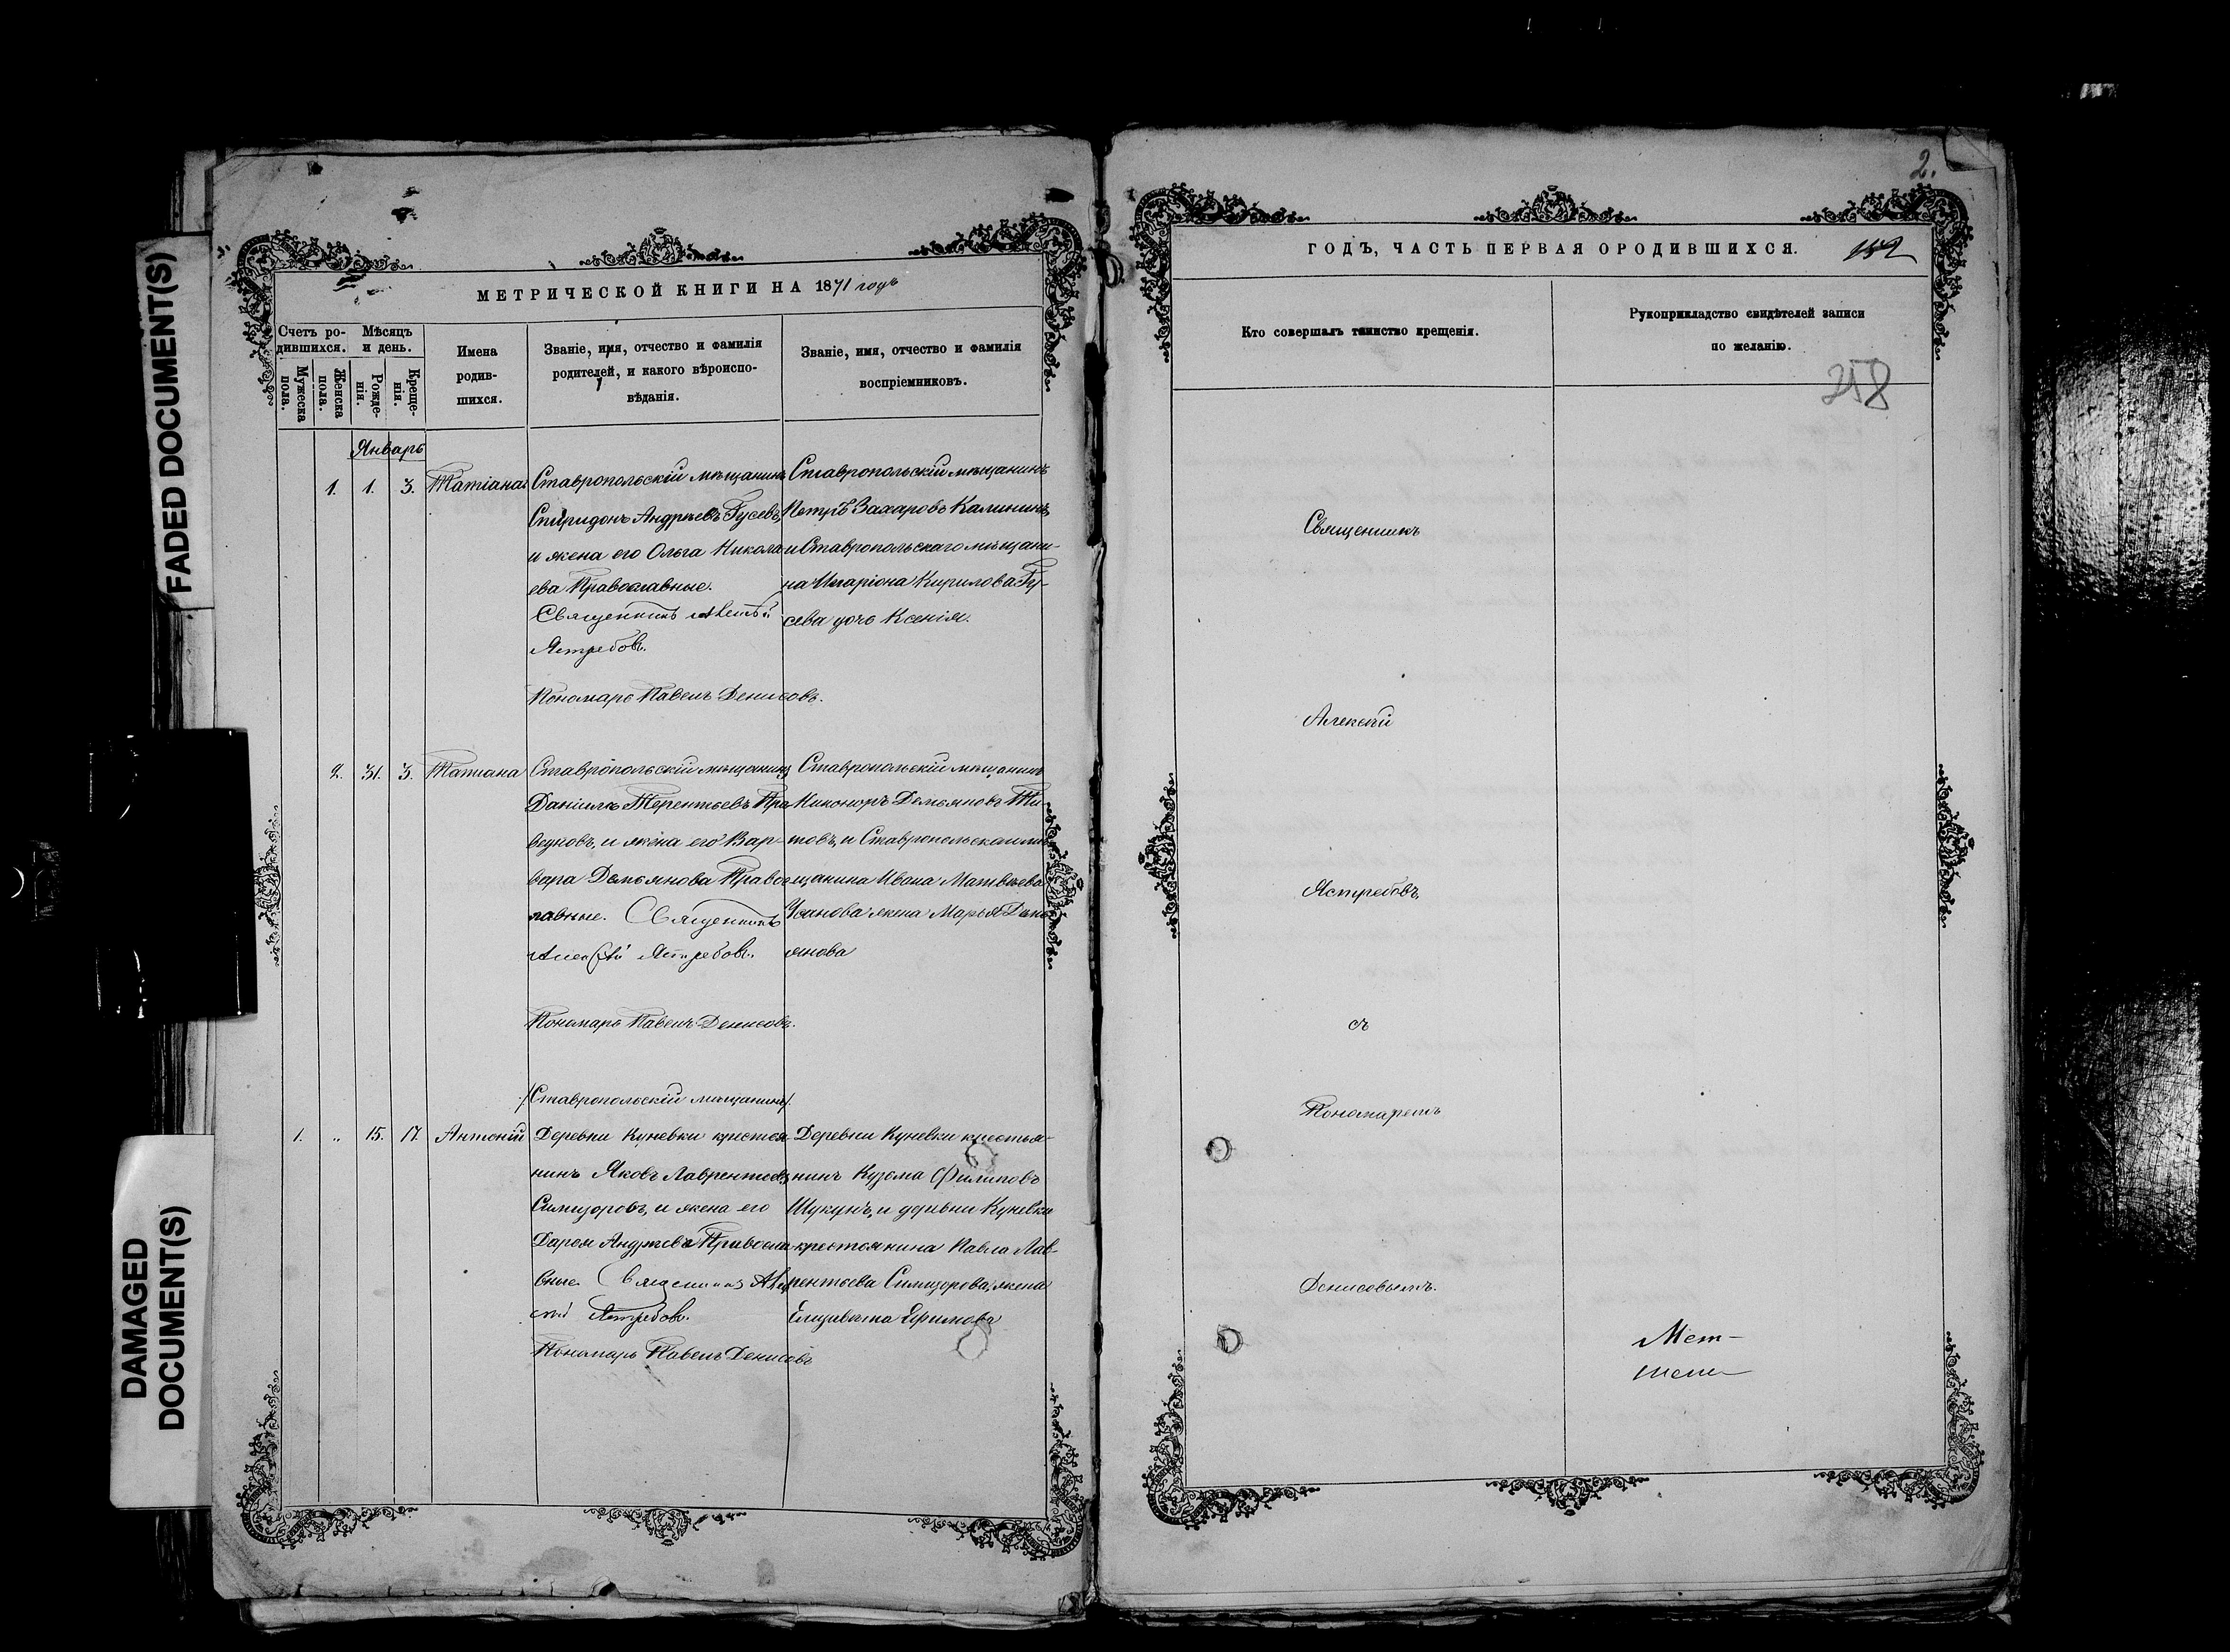 FADED DOCUMENT(S)
DAMAGED
DOCUMENT(S)
МЕТРИЧЕСКОЙ КНИГИ НА 1871 годъ
Счетъ ро-
дившихся.
Мужеска
пола.
Женска
пола.
Мѣсяцъ
и день.
Рожде-
нія.
Креще-
нія.
Имена
родив-
шихся.
Званіе, имя, отчество и фамилія
родителей, и какого вѣроиспо-
вѣданія.
Званіе, имя, отчество и фамилія
воспріемниковъ.
Январь
1. 1. 3. Татіана
Ставропольскій мѣщанинъ
Спиридонъ Андреевъ Гусевъ,
и жена его Ольга Никола-
ева Православные.
Священникъ Алексѣй
Ястребовъ.
Пономарь Павелъ Денисовъ.
Ставропольскій мѣщанинъ
Петръ Захаровъ Калининъ,
и Ставропольскаго мѣщани-
на Иларіона Кирилова Гу-
сева дочь Ксенія.
2. 31. 3. Татіана
Ставропольскій мѣщанинъ
Даніилъ Терентьевъ Пра-
ведновъ, и жена его Вар-
вара Демьянова Правос-
лавные. Священникъ
Алексѣй Ястребовъ.
Пономарь Павелъ Денисовъ.
Ставропольскій мѣщанинъ
Никоноръ Демьяновъ Ти-
товъ, и Ставропольскаго мѣ-
щанина Ивана Матвѣева
жена Марья Демь-
янова
/Ставропольскій мѣщанинъ/
1. „ 15. 17. Антоній
Деревни Куневки крестья-
нинъ Яковъ Лаврентьевъ
Сидоровъ, и жена его
Дарья Андреева Правосла-
вные. Священникъ Алек-
сѣй Ястребовъ.
Пономарь Павелъ Денисовъ
Деревни Куневки крестья-
нинъ Кузьма Филиповъ
Шукунъ, и деревни Куневки
крестьянина Павла Лав-
рентьева жена
Елизавета Ефимова
2.
ГОДЪ, ЧАСТЬ ПЕРВАЯ О РОДИВШИХСЯ.
152
Кто совершалъ таинство крещенія.
Рукоприкладство свидѣтелей записи
по желанію.
258
Священникъ
Алексѣй
Ястребовъ,
съ
Пономаремъ
Денисовымъ.